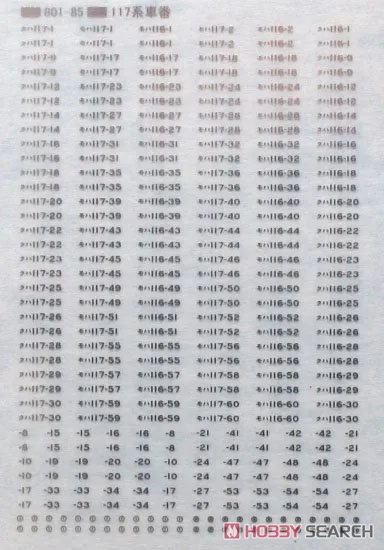 601-85 117系車番
クハ117-1 モハ117-1 モハ116-1 モハ117-2 モハ116-2 クハ116-1
クハ117-1 モハ117-1 モハ116-1 モハ117-2 モハ116-2 クハ116-1
クハ117-9 モハ117-17 モハ116-17 モハ117-18 モハ116-18 クハ116-9
クハ117-9 モハ117-17 モハ116-17 モハ117-18 モハ116-18 クハ116-9
クハ117-12 モハ117-23 モハ116-23 モハ117-24 モハ116-24 クハ116-12
クハ117-12 モハ117-23 モハ116-23 モハ117-24 モハ116-24 クハ116-12
クハ117-14 モハ117-27 モハ116-27 モハ117-28 モハ116-28 クハ116-14
クハ117-14 モハ117-27 モハ116-27 モハ117-28 モハ116-28 クハ116-14
クハ117-16 モハ117-31 モハ116-31 モハ117-32 モハ116-32 クハ116-16
クハ117-16 モハ117-31 モハ116-31 モハ117-32 モハ116-32 クハ116-16
クハ117-18 モハ117-35 モハ116-35 モハ117-36 モハ116-36 クハ116-18
クハ117-18 モハ117-35 モハ116-35 モハ117-36 モハ116-36 クハ116-18
クハ117-20 モハ117-39 モハ116-39 モハ117-40 モハ116-40 クハ116-20
クハ117-20 モハ117-39 モハ116-39 モハ117-40 モハ116-40 クハ116-20
クハ117-22 モハ117-43 モハ116-43 モハ117-44 モハ116-44 クハ116-22
クハ117-22 モハ117-43 モハ116-43 モハ117-44 モハ116-44 クハ116-22
クハ117-23 モハ117-45 モハ116-45 モハ117-46 モハ116-46 クハ116-23
クハ117-23 モハ117-45 モハ116-45 モハ117-46 モハ116-46 クハ116-23
クハ117-25 モハ117-49 モハ116-49 モハ117-50 モハ116-50 クハ116-25
クハ117-25 モハ117-49 モハ116-49 モハ117-50 モハ116-50 クハ116-25
クハ117-26 モハ117-51 モハ116-51 モハ117-52 モハ116-52 クハ116-26
クハ117-26 モハ117-51 モハ116-51 モハ117-52 モハ116-52 クハ116-26
クハ117-28 モハ117-55 モハ116-55 モハ117-56 モハ116-56 クハ116-28
クハ117-28 モハ117-55 モハ116-55 モハ117-56 モハ116-56 クハ116-28
クハ117-29 モハ117-57 モハ116-57 モハ117-58 モハ116-58 クハ116-29
クハ117-29 モハ117-57 モハ116-57 モハ117-58 モハ116-58 クハ116-29
クハ117-30 モハ117-59 モハ116-59 モハ117-60 モハ116-60 クハ116-30
クハ117-30 モハ117-59 モハ116-59 モハ117-60 モハ116-60 クハ116-30
-8 -15 -15 -16 -16 -8 -21 -41 -41 -42 -42 -21
-8 -15 -15 -16 -16 -8 -21 -41 -41 -42 -42 -21
-10 -19 -19 -20 -20 -10 -24 -47 -47 -48 -48 -24
-10 -19 -19 -20 -20 -10 -24 -47 -47 -48 -48 -24
-17 -33 -33 -34 -34 -17 -27 -53 -53 -54 -54 -27
-17 -33 -33 -34 -34 -17 -27 -53 -53 -54 -54 -27
HOBBY SEARCH